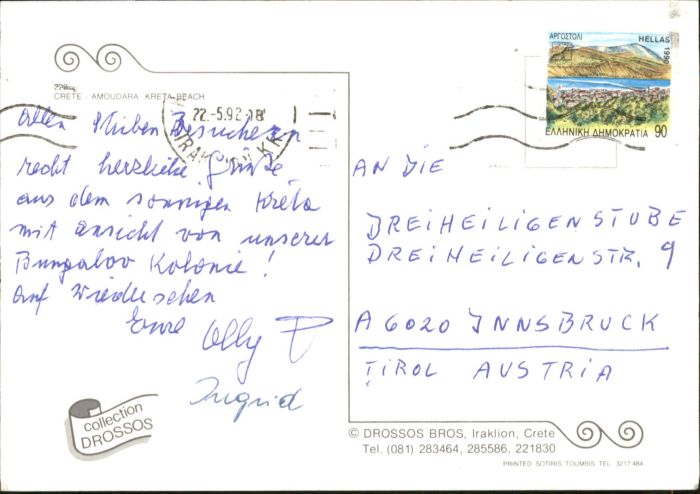 220
CRETE - AMOUDARA. KRETA BEACH
22.-5.92-18
ΑΡΓΟΣΤΟΛΙ
HELLAS
1990
ΕΛΛΗΝΙΚΗ ΔΗΜΟΚΡΑΤΙΑ 90
allen Stuben Besuchern
recht herzliche Grüße
aus dem sonnigen Kréta
mit ansicht von unserer
Bungalov Kolonie!
auf wiedersehen
Eure Olly
Ingrid
AN DIE
DREIHEILIGENSTUBE
DREIHEILIGENSTR. 9
A 6020 INNSBRUCK
TIROL AUSTRIA
collection
DROSSOS
© DROSSOS BROS, Iraklion, Crete
Tel. (081) 283464, 285586. 221830
PRINTED SOTIRIS TOUMBIS TEL. 3217 484